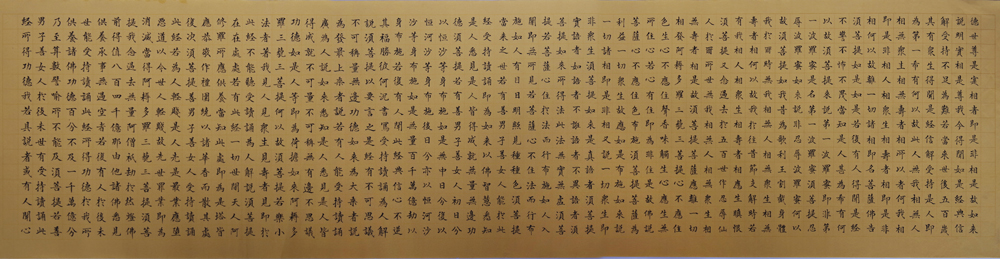 德世尊是實相者即是非相是故如來
說名實相世尊我今得聞如是經典信
解受持不足為難若當來世後五百歲
其有眾生得聞是經信解受持是人即
為第一希有何以故此人無我相無人
相無眾生相無壽者相所以者何我相
即是非相人相眾生相壽者相即是非
相何以故離一切諸相即名諸佛佛告
須菩提如是如是若復有人得聞是經
不驚不怖不畏當知是人甚為希有何
以故須菩提如來說第一波羅蜜即非第
一波羅蜜是名第一波羅蜜須菩提忍
辱波羅蜜如來說非忍辱波羅蜜何以
故須菩提如我昔為歌利王割截身體
我於爾時無我相無人相無眾生相無
壽者相何以故我於往昔節節支解時
若有我相人相眾生相壽者相應生瞋恨
須菩提又念過去於五百世作忍辱仙
人於爾所世無我相無人相無眾生相
無壽者相是故須菩提菩薩應離一切
相發阿耨多羅三藐三菩提心不應住
色生心不應住聲香味觸法生心應生無
所住心若心有住即為非住是故佛說菩薩
心不應住色布施須菩提菩薩為
利益一切眾生故應如是布施如來說
一切諸相即是非相又說一切眾生即
非眾生須菩提如來是真語者
實語者如語者不誑語者不異語者須菩
提如來所得法此法無實無虛須菩提
若菩薩心住於法而行布施如人入
闇即無所見若菩薩心不住法而行布
施如人有目日光明照見種種色須菩提
當來之世若有善男子善女人能於此
經受持讀誦即為如來以佛智慧悉知
是人悉見是人皆得成就無量無邊功
德須菩提若有善男子善女人初日分以
恒河沙等身布施中日分復以恒河
沙等身布施後日分亦以恒河沙等
身布施如是無量百千萬億劫以
身布施若復有人聞此經典信心不逆
其福勝彼何況書寫受持讀誦為人解
說須菩提以要言之是經有不可思議
不可稱量無邊功德如來為發大乘者說
為發最上乘者說若有人能受持讀誦
廣為人說如來悉知是人悉見是人皆
得成就不可量不可稱無有邊不可思議
功德如是人等即為荷擔如來阿耨多
羅三藐三菩提何以故須菩提若樂小
法者著我見人見眾生見壽者見即於
此經不能聽受讀誦為人解說須菩提
在在處處若有此經一切世間天人阿
修羅所應供養當知此處即為是塔皆
應恭敬作禮圍繞以諸華香而散其處
復次須菩提善男子善女人受持讀誦
此經若為人輕賤是人先世罪業應墮
惡道以今世人輕賤故先世罪業即為
消滅當得阿耨多羅三藐三菩提須菩提
我念過去無量阿僧祇劫於然燈佛
前得值八百四千萬億那由他諸佛悉
皆供養承事無空過者若復有人於後末
世能受持讀誦此經所得功德於我所
供養諸佛功德百分不及一千萬億分
乃至算數譬喻所不能及須菩提若善
男子善女人於後末世有受持讀誦此
經所得功德我若具說者或有人聞心